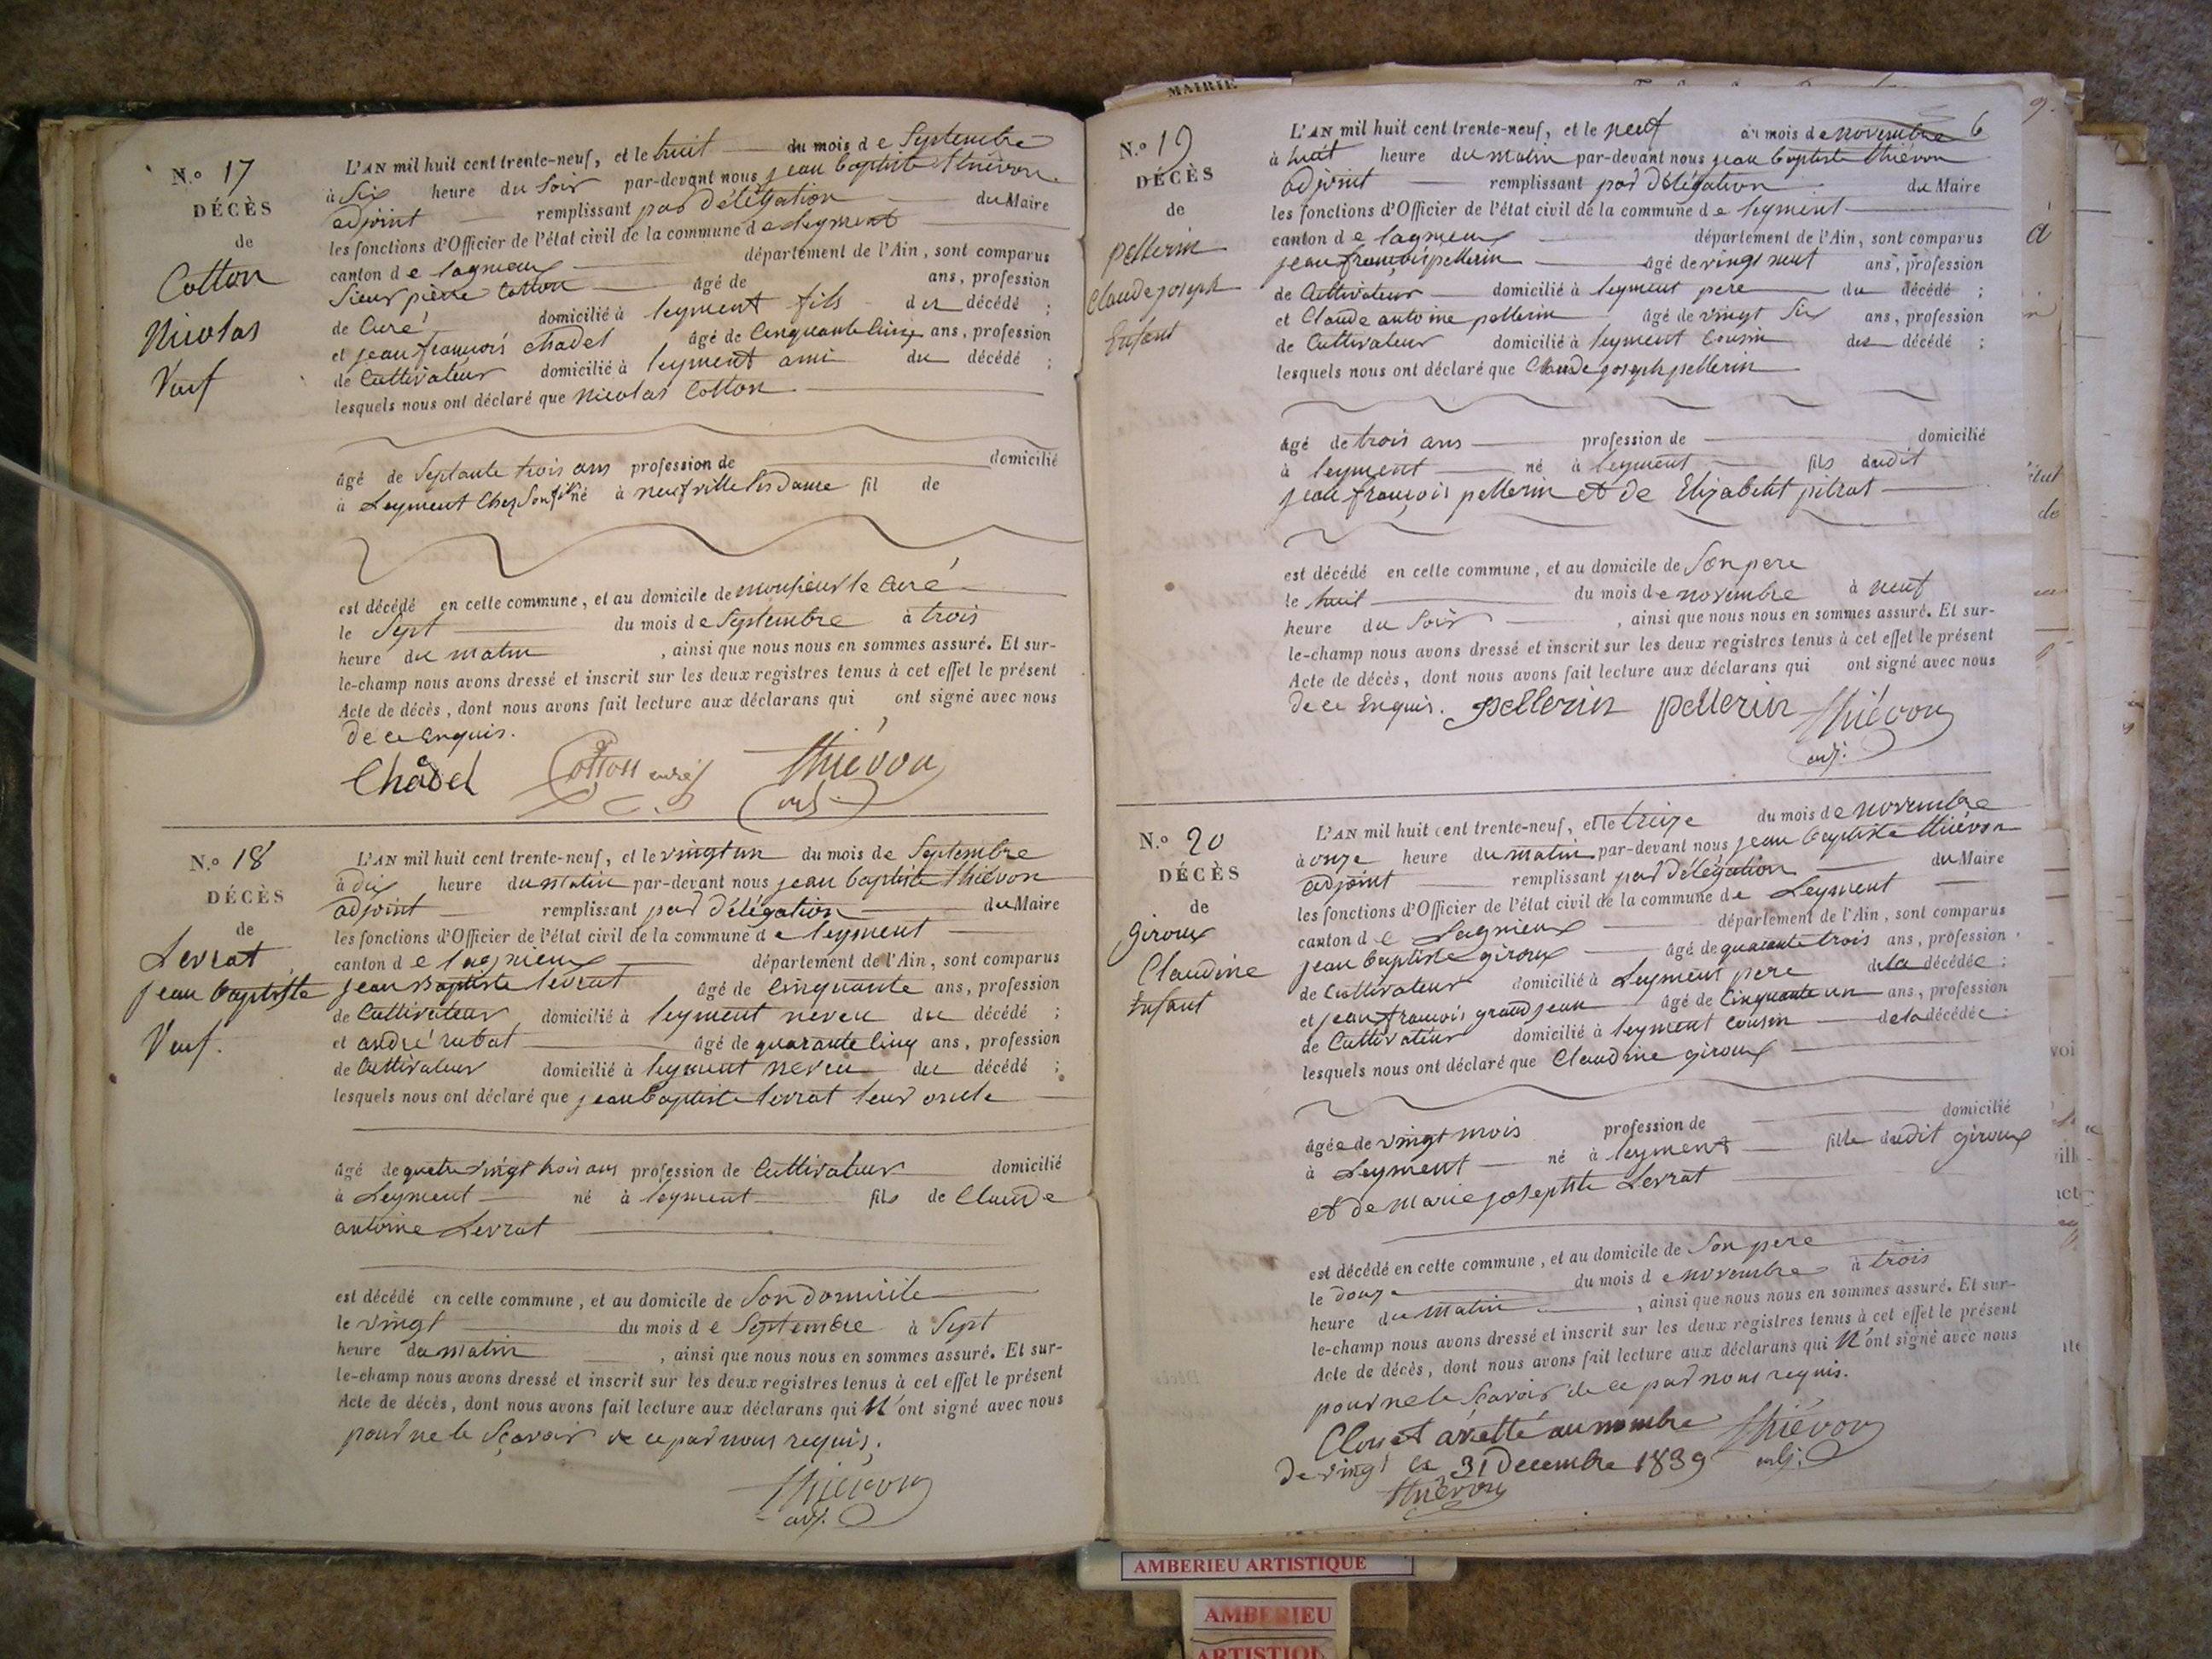 N.° 17
DÉCÈS
de
Cotton
Nicolas
Veuf
L'AN mil huit cent trente-neuf, et le huit du mois de Septembre
à Six heure du Soir par-devant nous jean baptiste thiévon
adjoint remplissant par délégation du Maire
les fonctions d'Officier de l'état civil de la commune de leyment
canton de lagnieux département de l'Ain, sont comparus
Sieur pierre Cotton âgé de ans, profession
de Curé domicilié à leyment fils du décédé ;
et jean françois chadel âgé de Cinquante Cinq ans, profession
de Cultivateur domicilié à leyment ami du décédé ;
lesquels nous ont déclaré que nicolas Cotton
âgé de Septante trois ans profession de domicilié
à Leyment Chez Son fils né à neufville les dame fil de
est décédé en celle commune, et au domicile de monsieur le Curé
le Sept du mois de Septembre à trois
heure du matin , ainsi que nous nous en sommes assuré. Et sur-
le-champ nous avons dressé et inscrit sur les deux registres tenus à cet effet le présent
Acte de décès, dont nous avons fait lecture aux déclarans qui ont signé avec nous
de ce Enquis.
Chadel Cotton curé thiévon
adj.
N.° 18
DÉCÈS
de
Levrat
jean baptiste
Veuf.
L'AN mil huit cent trente-neuf, et le vingt un du mois de Septembre
à dix heure du matin par-devant nous jean baptiste thiévon
adjoint remplissant par délégation du Maire
les fonctions d'Officier de l'état civil de la commune de leyment
canton de lagnieux département de l'Ain, sont comparus
jean Baptiste levrat âgé de Cinquante ans, profession
de Cultivateur domicilié à leyment neveu du décédé ;
et andré rubat âgé de quarante Cinq ans, profession
de Cultivateur domicilié à leyment neveu du décédé ;
lesquels nous ont déclaré que jean baptiste levrat leur oncle
âgé de quatre vingt trois ans profession de Cultivateur domicilié
à Leyment né à leyment fils de Claude
antoine Levrat
est décédé en celle commune, et au domicile de Son domicile
le vingt du mois de Septembre à Sept
heure du matin , ainsi que nous nous en sommes assuré. Et sur-
le-champ nous avons dressé et inscrit sur les deux registres tenus à cet effet le présent
Acte de décès, dont nous avons fait lecture aux déclarans qui N'ont signé avec nous
pour ne le Sçavoir de ce par nous requis.
thiévon
adj.
MAIRIE
N.° 19
DÉCÈS
de
pellerin
Claude joseph
Enfant
L'AN mil huit cent trente-neuf, et le neuf du mois de novembre 6
à huit heure du matin par-devant nous jean baptiste thiévon
adjoint remplissant par délégation du Maire
les fonctions d'Officier de l'état civil de la commune de leyment
canton de lagnieux département de l'Ain, sont comparus
jean françois pellerin âgé de vingt neuf ans, profession
de Cultivateur domicilié à leyment pere du décédé ;
et Claude antoine pellerin âgé de vingt Six ans, profession
de Cultivateur domicilié à leyment Cousin du décédé ;
lesquels nous ont déclaré que Claude joseph pellerin
âgé de trois ans profession de domicilié
à leyment né à leyment fils dudit
jean françois pellerin et de Elizabeht pitrat
est décédé en celle commune, et au domicile de Son pere
le huit du mois de novembre à neuf
heure du Soir , ainsi que nous nous en sommes assuré. Et sur-
le-champ nous avons dressé et inscrit sur les deux registres tenus à cet effet le présent
Acte de décès, dont nous avons fait lecture aux déclarans qui ont signé avec nous
de ce Enquis. pellerin pellerin thiévon
adj.
N.° 20
DÉCÈS
de
giroux
Claudine
Enfant
L'AN mil huit cent trente-neuf, et le treize du mois de novembre
à onze heure du matin par-devant nous jean baptiste thiévon
adjoint remplissant par délégation du Maire
les fonctions d'Officier de l'état civil de la commune de Leyment
canton de Lagnieux département de l'Ain, sont comparus
jean baptiste giroux âgé de quarante trois ans, profession
de Cultivateur domicilié à Leyment pere de la décédée ;
et jean françois grand jean âgé de Cinquante un ans, profession
de Cultivateur domicilié à leyment Cousin de la décédée ;
lesquels nous ont déclaré que Claudine giroux
âgée de vingt mois profession de domicilié
à Leyment né à leyment fille dudit giroux
et de marie josephte Levrat
est décédé en cette commune, et au domicile de Son pere
le douze du mois de novembre à trois
heure du matin , ainsi que nous nous en sommes assuré. Et sur-
le-champ nous avons dressé et inscrit sur les deux registres tenus à cet effet le présent
Acte de décès, dont nous avons fait lecture aux déclarans qui N'ont signé avec nous
pour ne le Sçavoir de ce par nous requis.
Clos et arretté au nombre thiévon
de vingt le 31 Decembre 1839 adj.
thiévon
AMBERIEU ARTISTIQUE
AMBERIEU
ARTISTIQU